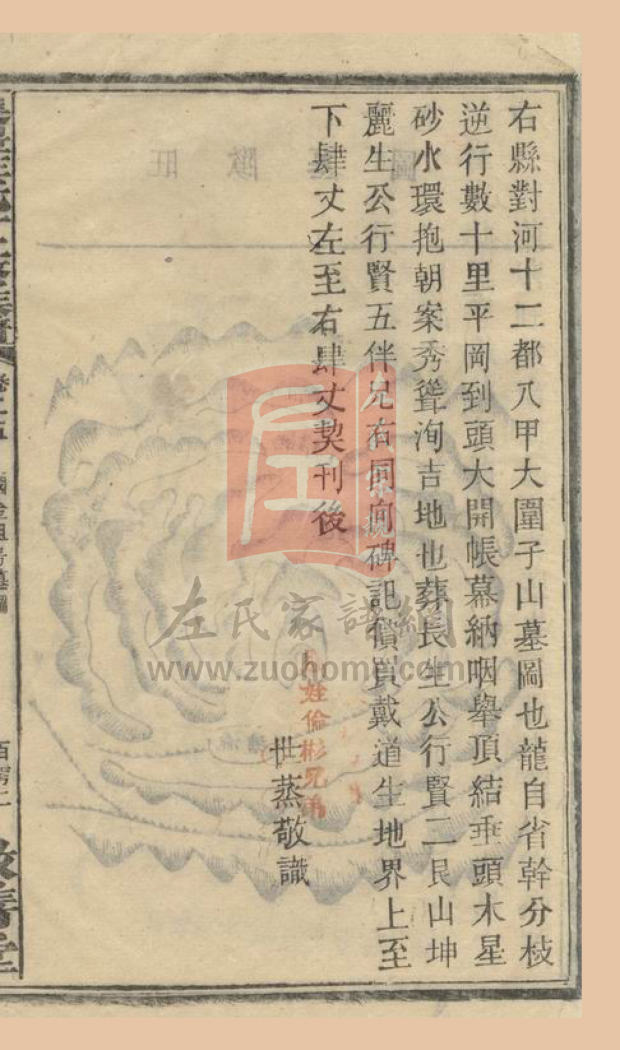 右縣對河十二都八甲大圍子山墓圖也龍自省幹分枝
逆行數十里平岡到頭大開帳幕納咽舉頂結垂頭木星
砂水環抱朝案秀聳洵吉地也葬長生公行賢二艮山坤
麗生公行賢五伴兄右同向碑記價買戴道生地界上至
下肆丈左至右肆丈契刊後
世蒸敬識
姓倫彬兄弟
左氏家譜網
www.zuohome.com